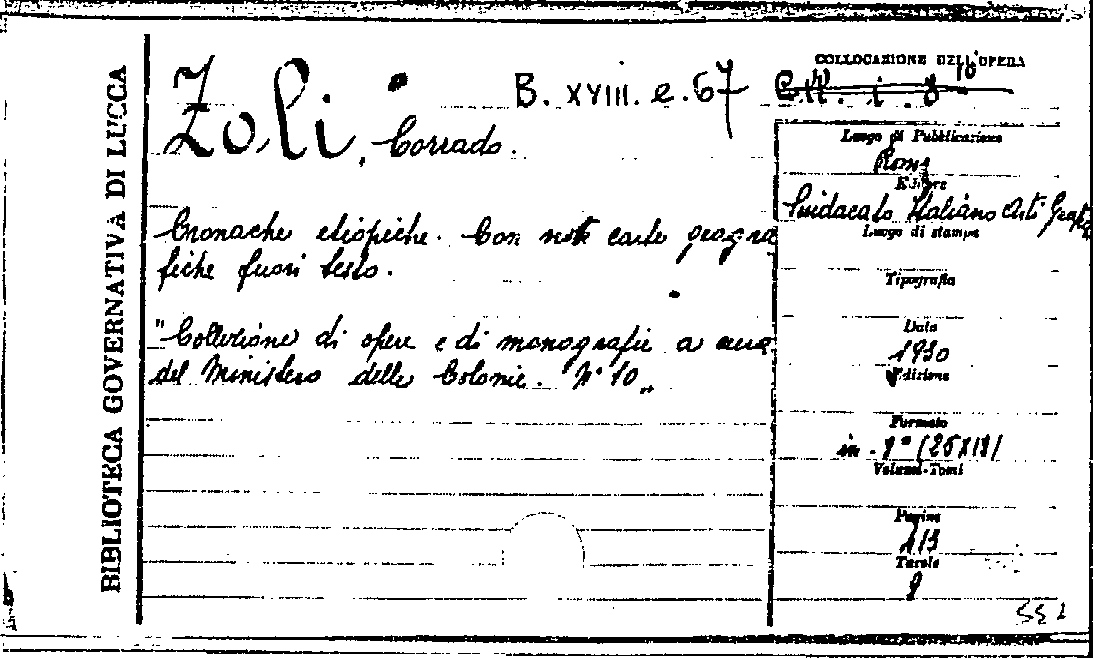 BIBLIOTECA GOVERNATIVA DI LUCCA
Zoli, Corrado.
B. XVIII. e. 67
Cronache etiopiche. Con note carte geogra
fiche fuori testo.
"Collezione di opere e di monografie a cura
del Ministero delle Colonie. N° 10"
COLLOCAZIONE DELL'OPERA
Luogo di Pubblicazione
Roma
Editore
Sindacato Italiano Arti Grafi
Luogo di stampa
Tipografia
Data
1930
Edizione
Formato
in-8° (25X18)
Volumi-Tomi
Pagine
Tavole